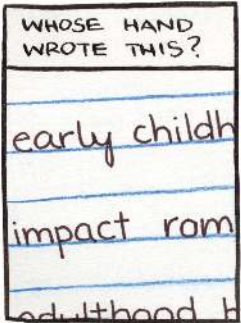 WHOSE HAND
WROTE THIS?
early childh
impact rom
adulthood h